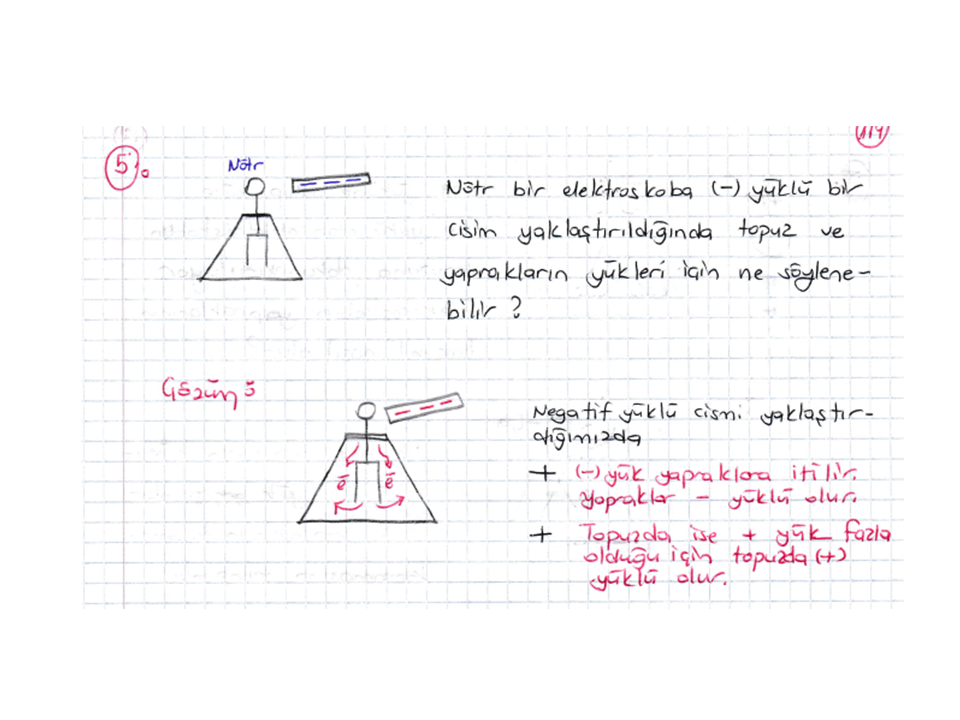 5.
Nötr
Nötr bir elektroskoba (-) yüklü bir
cisim yaklaştırıldığında topuz ve
yaprakların yükleri için ne söylene-
bilir ?
Çözüm 5
Negatif yüklü cismi yaklaştır-
dığımızda
+ (-) yük yapraklara itilir.
Yapraklar - yüklü olur.
+ Topuzda ise + yük fazla
olduğu için topuzda (+)
yüklü olur.
e e